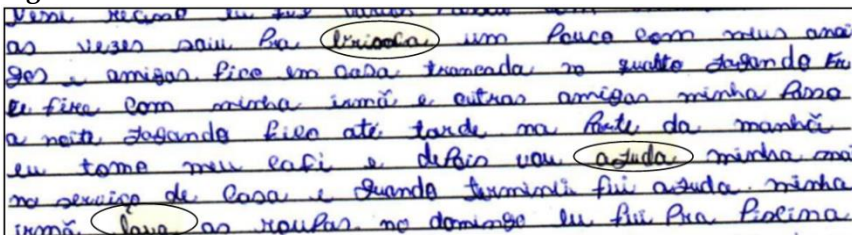 Nesse recinso eu fui
as vezes saiu Pra brinca um Pouco com meus ami
gos e amigas. fico em casa trancada no quatto Jogando Fre
e fire Com minha irmã e outras amigas minha Passo
a noite Jogando fico até tarde na Parte da manhã
eu tomo meu cafi e depois vou ajuda minha mãi
no serviço de Casa e Quando termini fui ajuda minha
irmã lava as roupas. no domingo eu fui Pra Piscina.